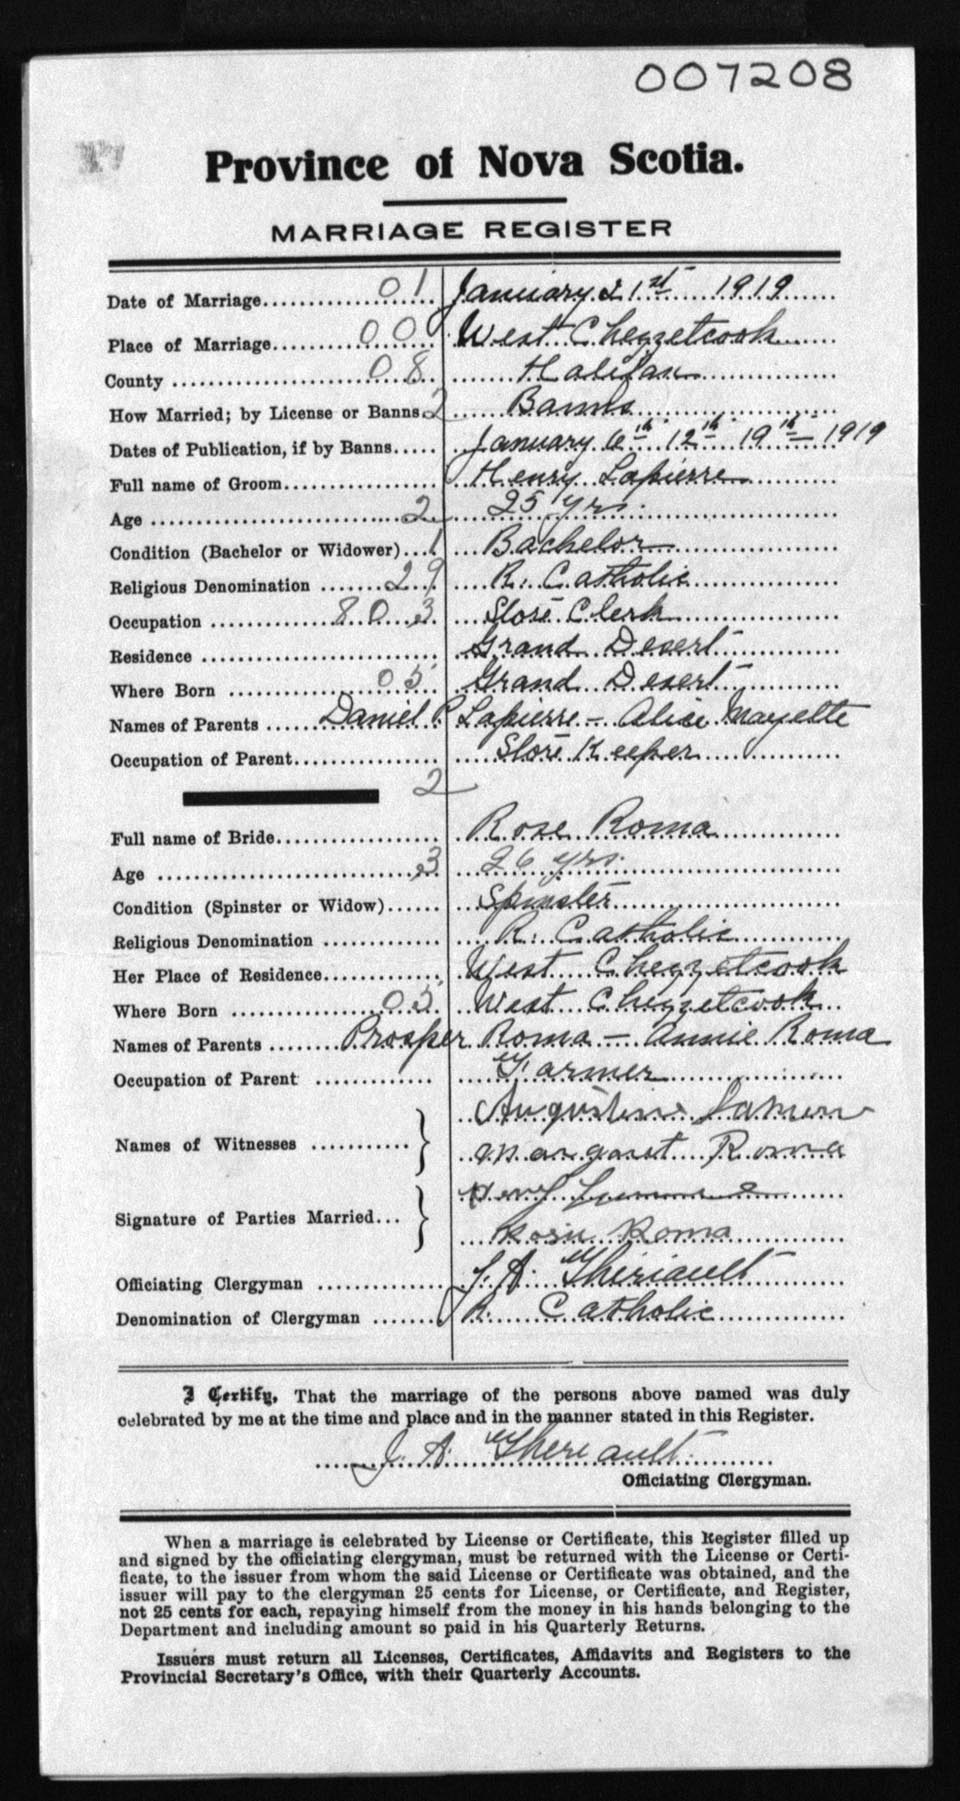 007208
Province of Nova Scotia.
MARRIAGE REGISTER
Date of Marriage 01 January 21st 1919
Place of Marriage 00 West Chezzetcook
County 08 Halifax
How Married; by License or Banns 2 Banns
Dates of Publication, if by Banns January 6th 12th 19th 1919
Full name of Groom Henry Lapierre
Age 2 25 yrs.
Condition (Bachelor or Widower) 1 Bachelor
Religious Denomination 29 R. Catholic
Occupation 803 Store Clerk
Residence Grand Desert
Where Born 05 Grand Desert
Names of Parents Daniel P. Lapierre – Alice Mayette
Occupation of Parent Store Keeper
2
Full name of Bride Rose Roma
Age 3 26 yrs.
Condition (Spinster or Widow) Spinster
Religious Denomination R. Catholic
Her Place of Residence West Chezzetcook
Where Born 05 West Chezzetcook
Names of Parents Prosper Roma – Annie Roma
Occupation of Parent Farmer
Names of Witnesses Augustine
Margaret Roma
Signature of Parties Married
Rosie Roma
Officiating Clergyman J. A. Theriault
Denomination of Clergyman R. Catholic
I Certify, That the marriage of the persons above named was duly
celebrated by me at the time and place and in the manner stated in this Register.
J. A. Theriault
Officiating Clergyman.
When a marriage is celebrated by License or Certificate, this Register filled up
and signed by the officiating clergyman, must be returned with the License or Certi-
ficate, to the issuer from whom the said License or Certificate was obtained, and the
issuer will pay to the clergyman 25 cents for License, or Certificate, and Register,
not 25 cents for each, repaying himself from the money in his hands belonging to the
Department and including amount so paid in his Quarterly Returns.
Issuers must return all Licenses, Certificates, Affidavits and Registers to the
Provincial Secretary's Office, with their Quarterly Accounts.